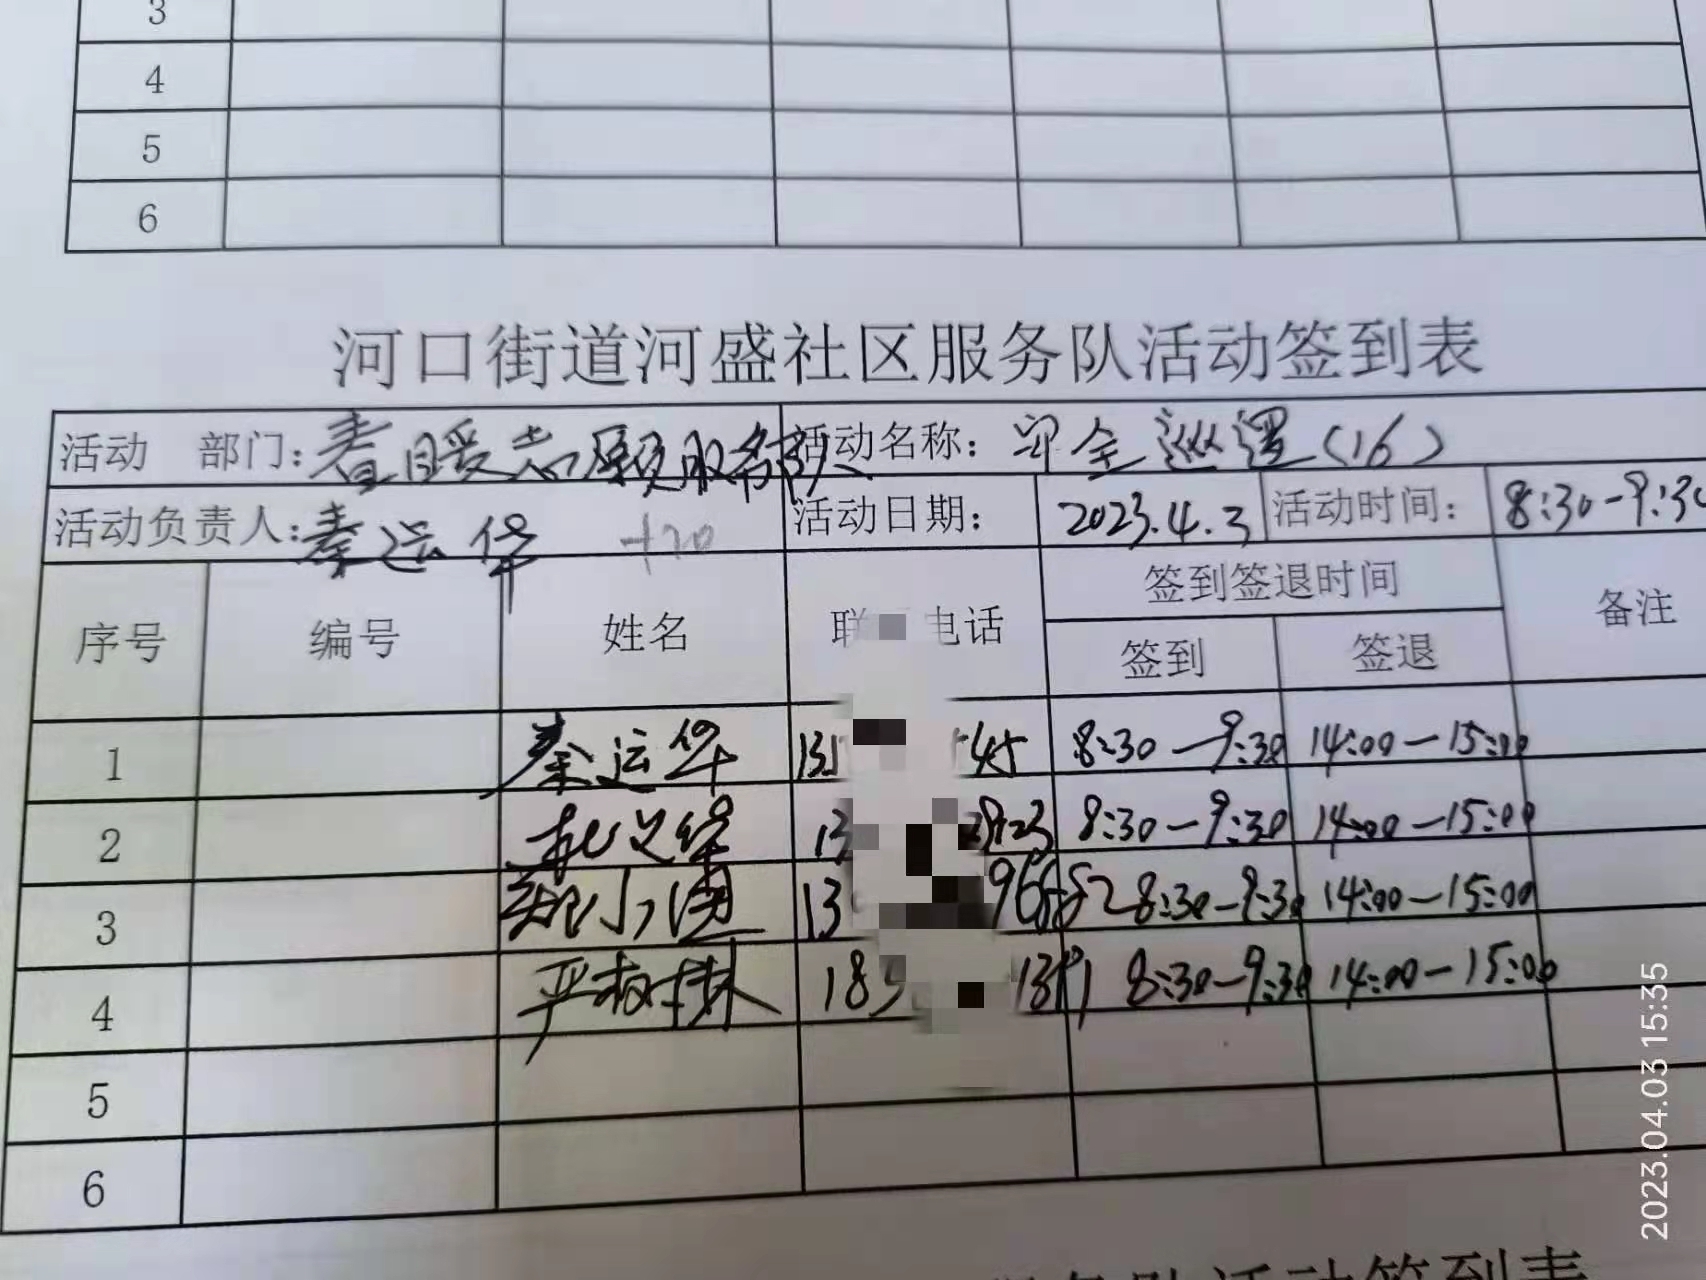 3
4
5
6
河口街道河盛社区服务队活动签到表
活动 部门：春暖志愿服务队 活动名称：平安巡逻(16)
活动负责人：秦运华 +20 活动日期： 2023.4.3 活动时间： 8:30-9:30
序号 编号 姓名 联 电话 签到签退时间 备注
签到 签退
1 秦运华 13 45 8:30-9:30 14:00-15:00
2 13 8:30-9:30 14:00-15:00
3 郑小 13 8:30-9:30 14:00-15:00
4 严树林 18 8:30-9:30 14:00-15:00
5
6
2023.04.03 15:35
务队活动签到表